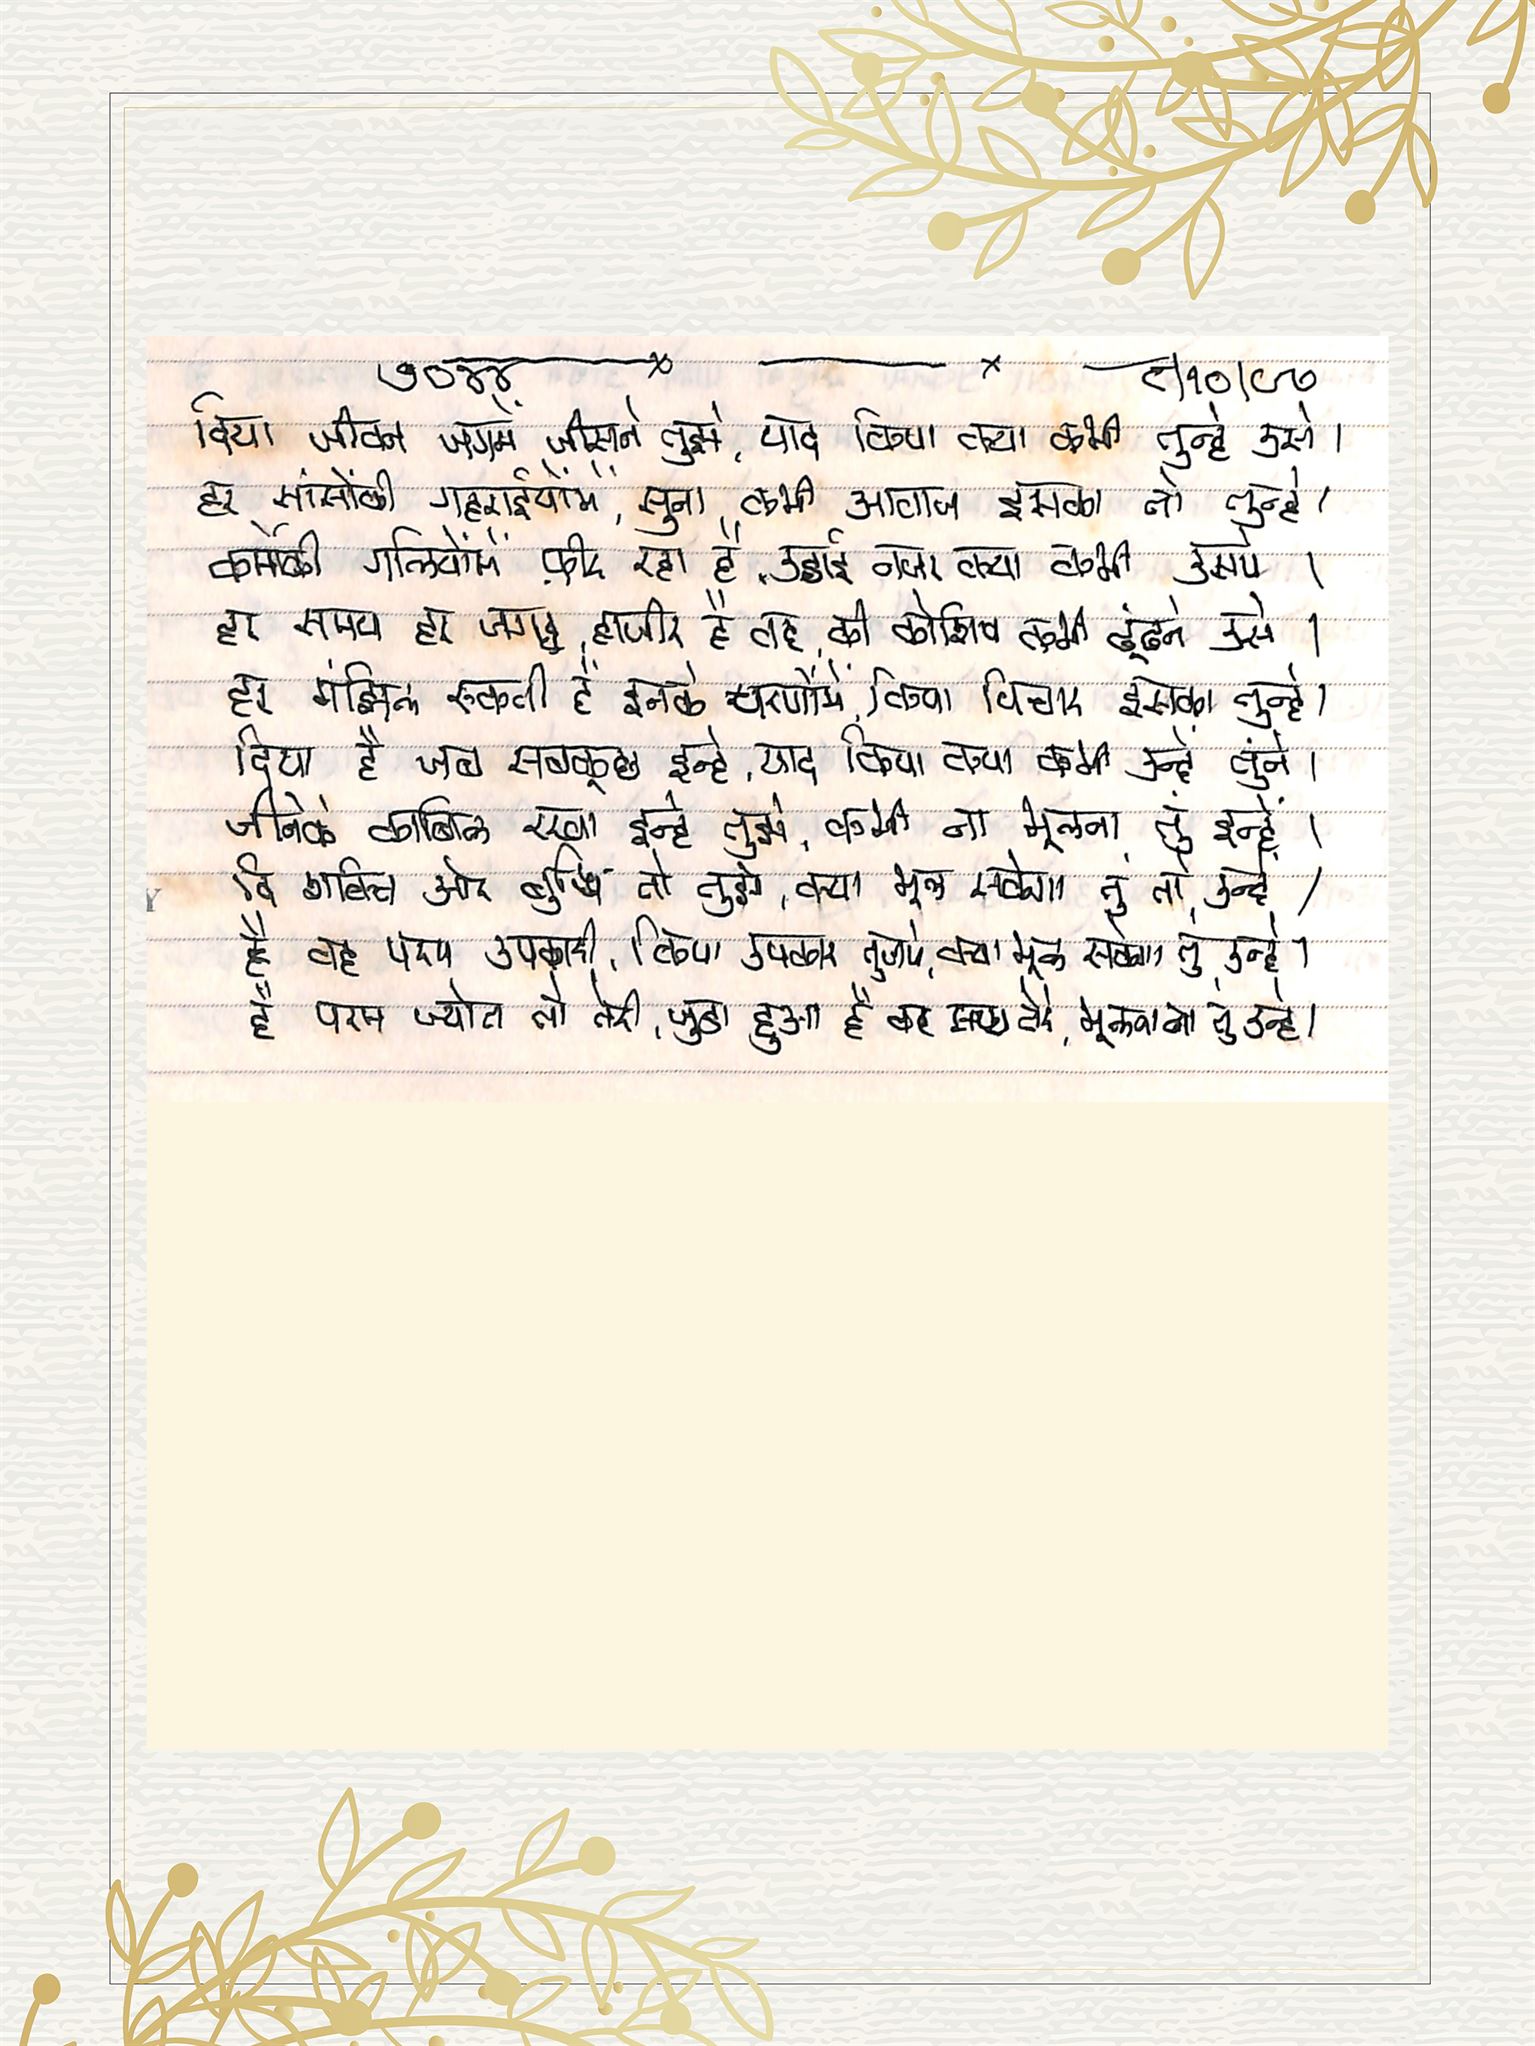 ७०४४ x x ८/१०/८७
दिया जीवन जगमें जीसने तुझे, याद किया क्या कभी तुन्हे उसे ।
हर सांसोंकी गहराईयोंमें, सुना कभी आवाज इसका तो तुन्हे ।
कर्मोकी गलियोंमें फ़ीर रहा है, उठाई नजर क्या कभी उसपे ।
हर समय हर जगह, हाजीर है वह, की कोशिष कभी ढूंढने उसे ।
हर मंझिल रुकती हैं इनके चरणोंमें, किया विचार इसका तुन्हे ।
दिया है जब सबकूछ इन्हे, याद किया क्या कभी उन्हें तुंने ।
जीनेके काबिल रखा इन्हे तुझे, कभी ना भूलना तुं इन्हें ।
दि शक्ति ओर बुध्धि तो तुझे, क्या भूल सकेगा तुं तो उन्हें ।
है वह परम उपकारी, किया उपकार तुजपे, क्या भूल सकेगा तु उन्हे ।
है परम ज्योत तो तेरी, जुडा हुआ है वह साथ तेरे, भूलना ना तु उन्हे ।